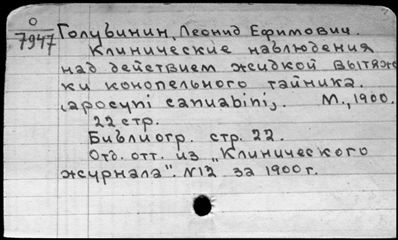 О
7947
Голубинин, Леонид Ефимович.
Клинические наблюдения
над действием жидкой вытяж-
ки конопельного тайника.
(apocyni canuabini). М., 1900.
22 стр.
Библиогр. стр. 22.
Отд. отт. из "Клинического
журнала". N12 за 1900 г.